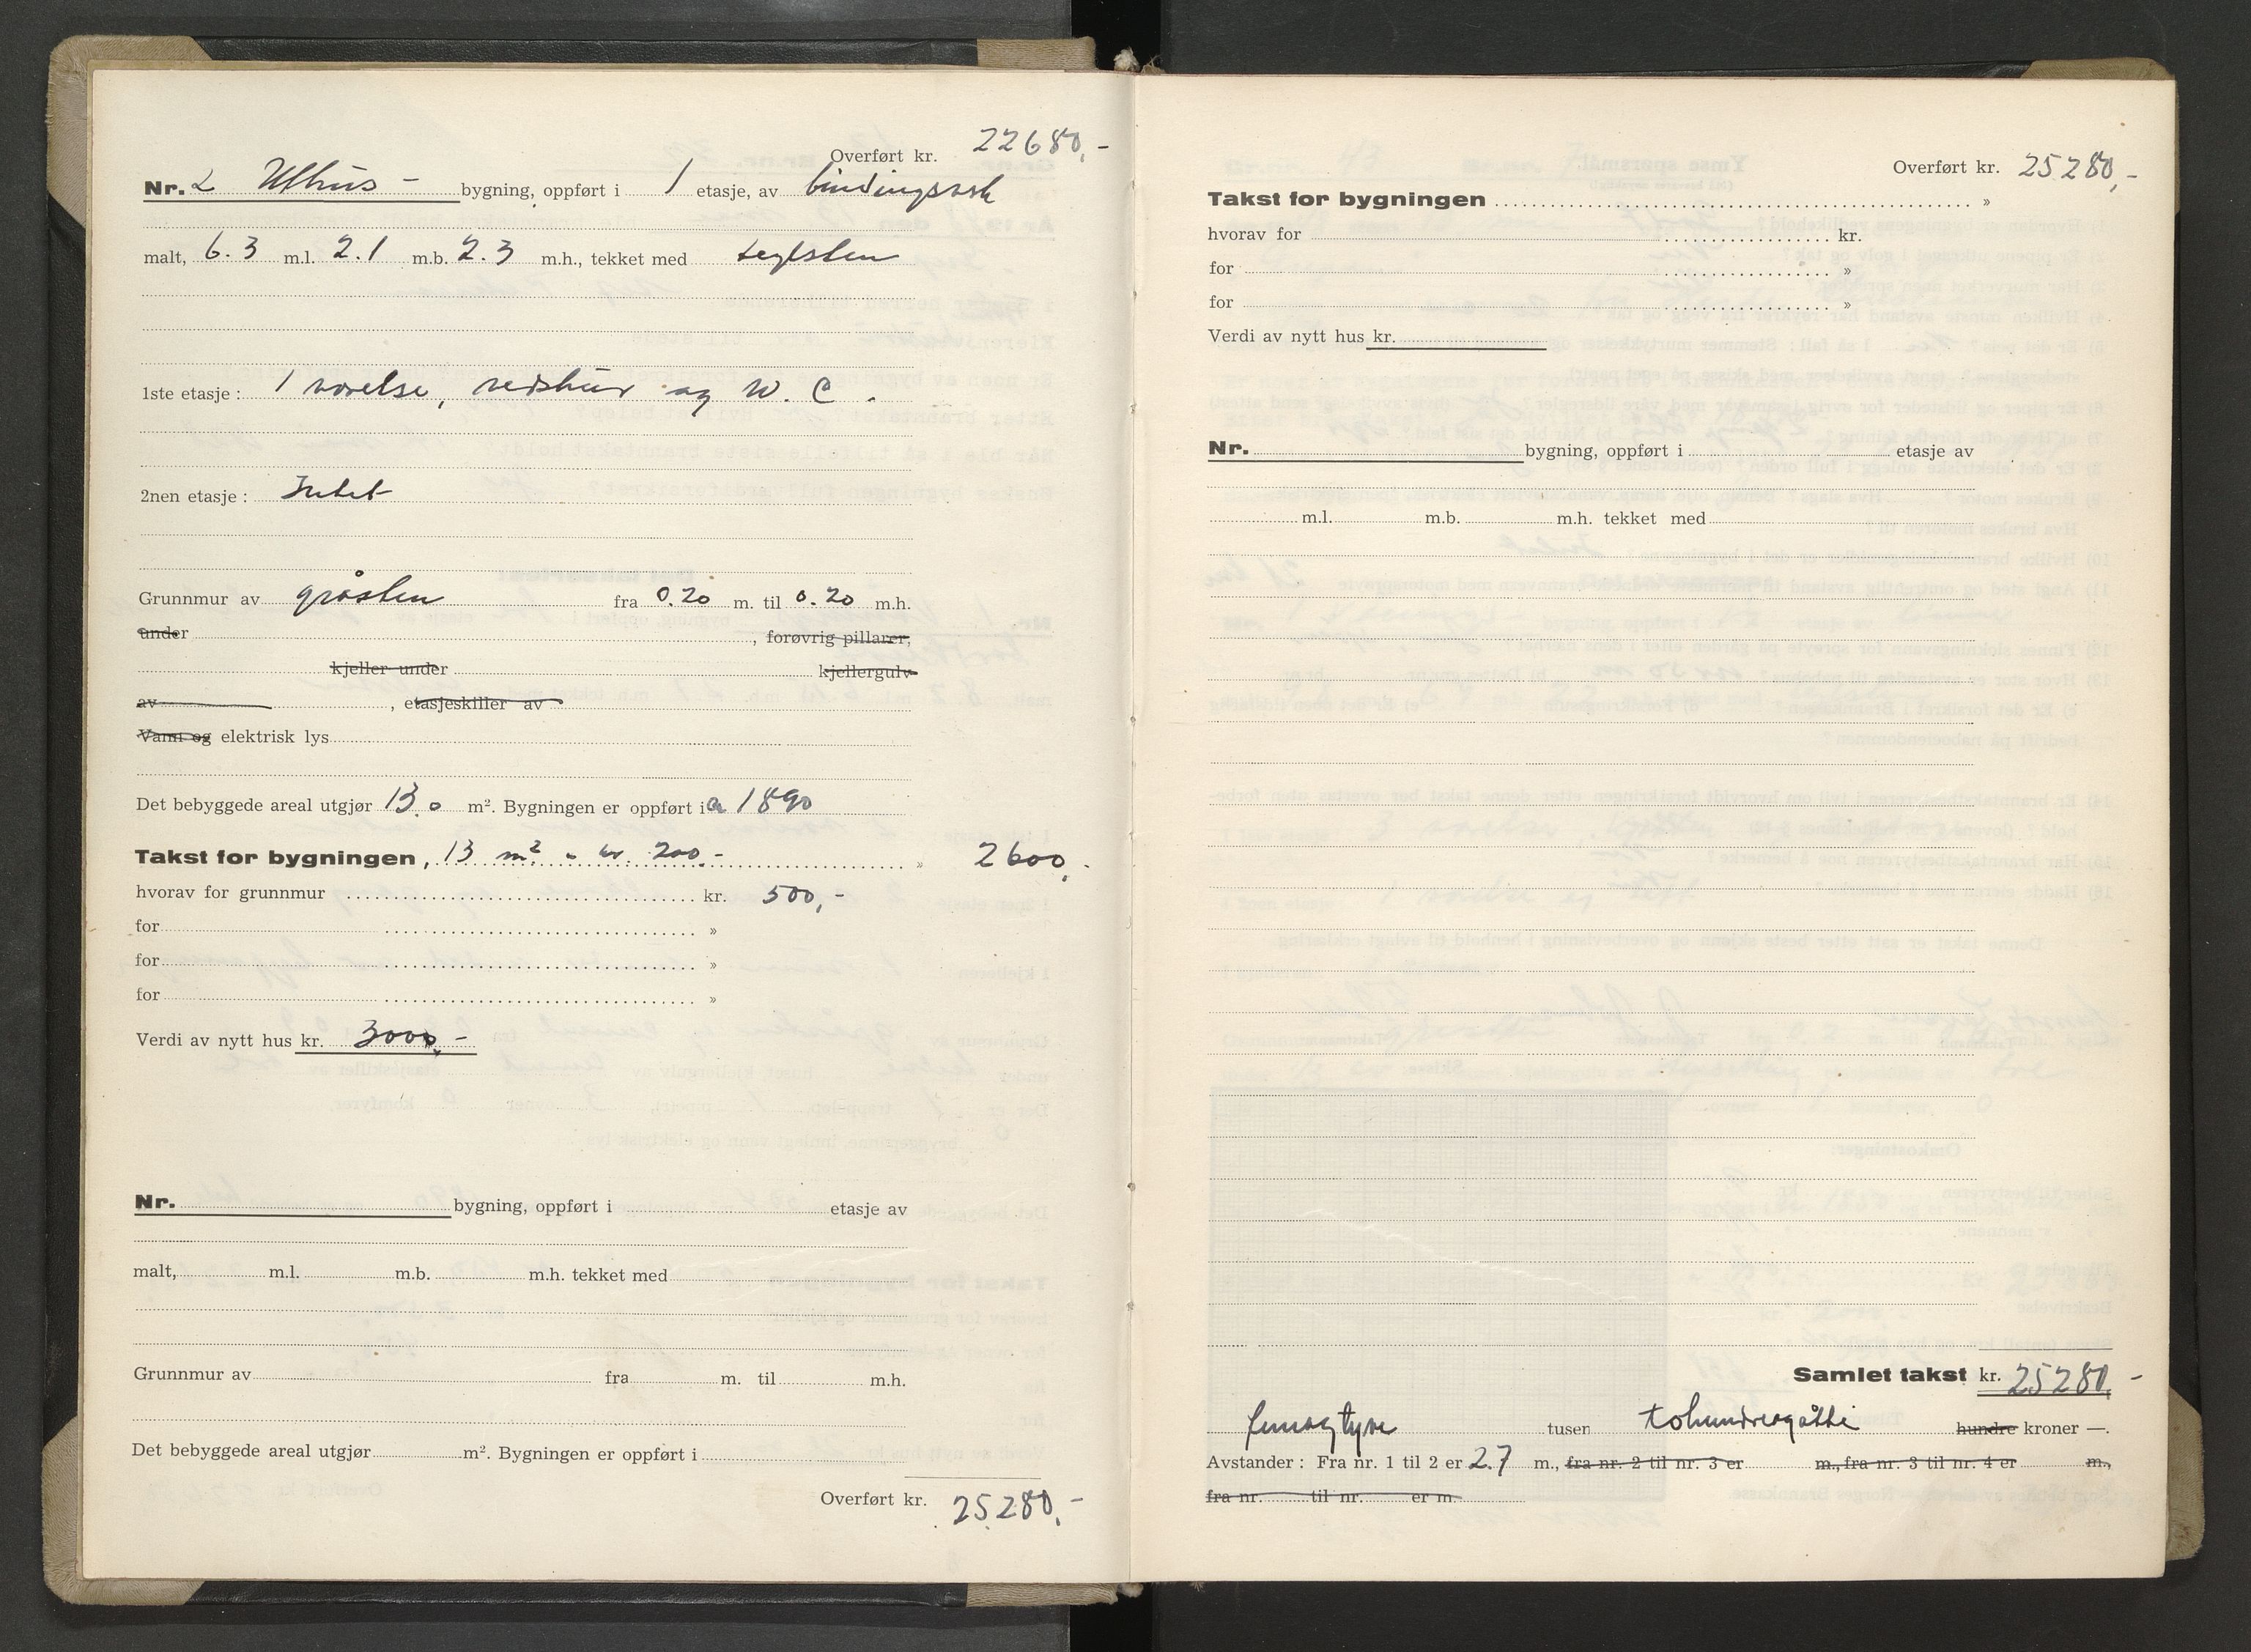 Overført kr. 22680,-
Nr. 2 Uthus - bygning, oppført i 1 etasje, av bindingsverk
malt, 6.3 m.l. 2.1 m.b. 2.3 m.h., tekket med teglsten
1ste etasje : 1 værelse, vedskur og W. C.
2nen etasje : Intet
Grunnmur av gråsten fra 0.20 m. til 0.20 m.h.
under , forøvrig pillarer,
kjeller under kjellergulv
av , etasjeskiller av
Vann og elektrisk lys
Det bebyggede areal utgjør 13.0 m². Bygningen er oppført i ca 1890
Takst for bygningen, 13 m² a kr. 200.- » 2600,-
hvorav for grunnmur kr. 500,-
for »
for »
for »
Verdi av nytt hus kr. 3000,-
Nr. bygning, oppført i etasje av
malt, m.l. m.b. m.h. tekket med
Grunnmur av fra m. til m.h.
Det bebyggede areal utgjør m². Bygningen er oppført i
Overført kr. 25280,-
Overført kr. 25280,-
Takst for bygningen »
hvorav for kr.
for »
for »
Verdi av nytt hus kr.
Nr. bygning, oppført i etasje av
m.l. m.b. m.h. tekket med
Samlet takst kr. 25280,-
femogtyve tusen tohundreogåtti hundre kroner —.
Avstander : Fra nr. 1 til 2 er 2.7 m., fra nr. 2 til nr. 3 er m., fra nr. 3 til nr. 4 er m.,
fra nr. til nr. er m.